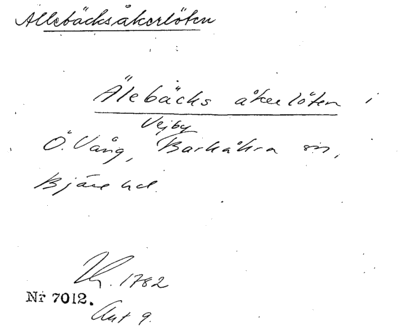 Allebäcksåkerlöten
Älebäcks åkerlöten i
Vejby
Ö. Vång, Barkåkra sn,
Bjäre hd.
1782
Nr 7012.
Akt 9.